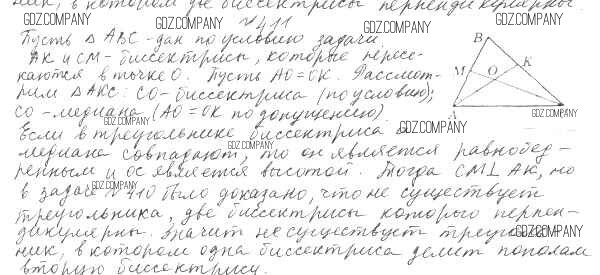 ник, в котором две биссектрисы перпендикулярны.
GDZ.COMPANY GDZ.COMPANY GDZ.COMPANY GDZ.COMPANY
№411
Пусть △ABC - дан по условию задачи,
AK и CM - биссектрисы, которые пересе-
каются в точке O. Пусть AO = OK. Рассмот-
рим △AKC: CO - биссектриса (по условию);
CO - медиана (AO = OK по допущению)
GDZ.COMPANY
B
M
K
O
A
GDZ.COMPANY
Если в треугольнике биссектриса и
GDZ.COMPANY
медиана совпадают, то он является равнобед-
GDZ.COMPANY
ренным и ос является высотой. Тогда CM⊥AK, но
GDZ.COMPANY
в задаче №410 было доказано, что не существует
треугольника, две биссектрисы которого перпен-
дикулярны. Значит не существует треуголь
GDZ.COMPANY
ник, в котором одна биссектриса делит пополам
вторую биссектрису.